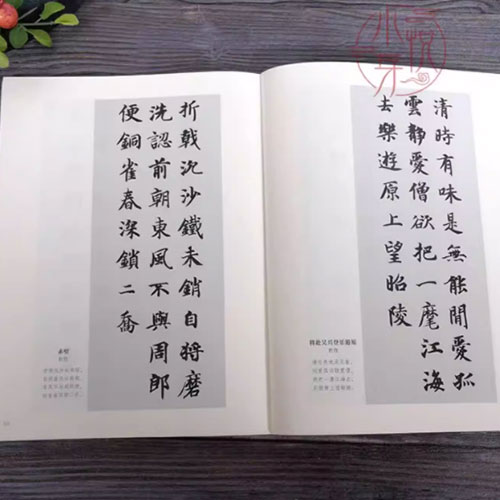 清時有味是無能閒愛孤
雲靜愛僧欲把一麾江海
去樂遊原上望昭陵
將赴吳興登樂遊原
杜牧
折戟沉沙鐵未銷自將磨
洗認前朝東風不與周郎
便銅雀春深鎖二喬
赤壁
杜牧